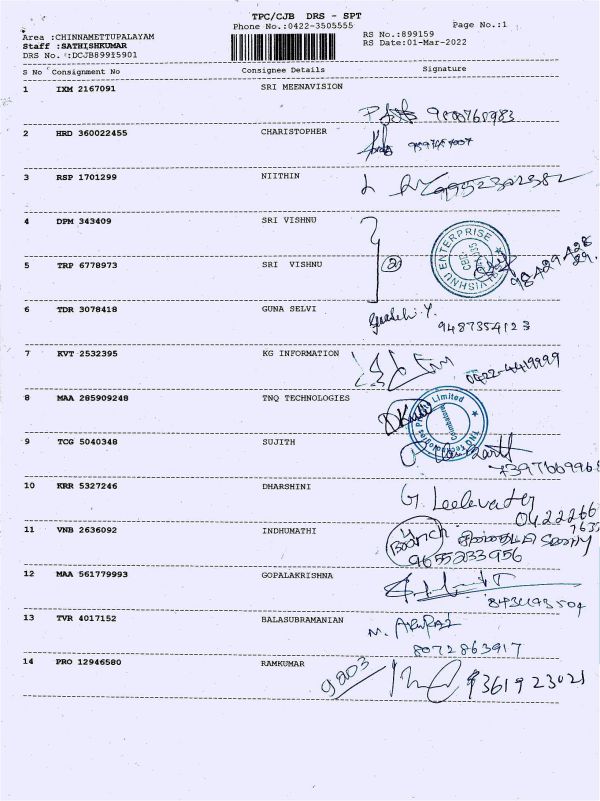 TPC/CJB DRS - SPT
Phone No.:0422-3505555 Page No.:1
Area :CHINNAMETTUPALAYAM RS No.:899159
Staff :SATHISHKUMAR RS Date:01-Mar-2022
DRS No. :DCJB89915901
S No Consignment No Consignee Details Signature
1 IXM 2167091 SRI MEENAVISION
2 HRD 360022455 CHARISTOPHER
3 RSP 1701299 NIITHIN
9952302382
4 DPM 343409 SRI VISHNU
VISHNU ENTERPRISE
CBE
5 TRP 6778973 SRI VISHNU
2
6 TDR 3078418 GUNA SELVI
9487354123
7 KVT 2532395 KG INFORMATION
0422-4419999
8 MAA 285909248 TNQ TECHNOLOGIES
TNQ Technologies Limited
Coimbatore
9 TCG 5040348 SUJITH
10 KRR 5327246 DHARSHINI
G. Leelavathy
11 VNB 2636092 INDHUMATHI
9655233956
12 MAA 561779993 GOPALAKRISHNA
13 TVR 4017152 BALASUBRAMANIAN
8072863917
14 PRO 12946580 RAMKUMAR
9361923021